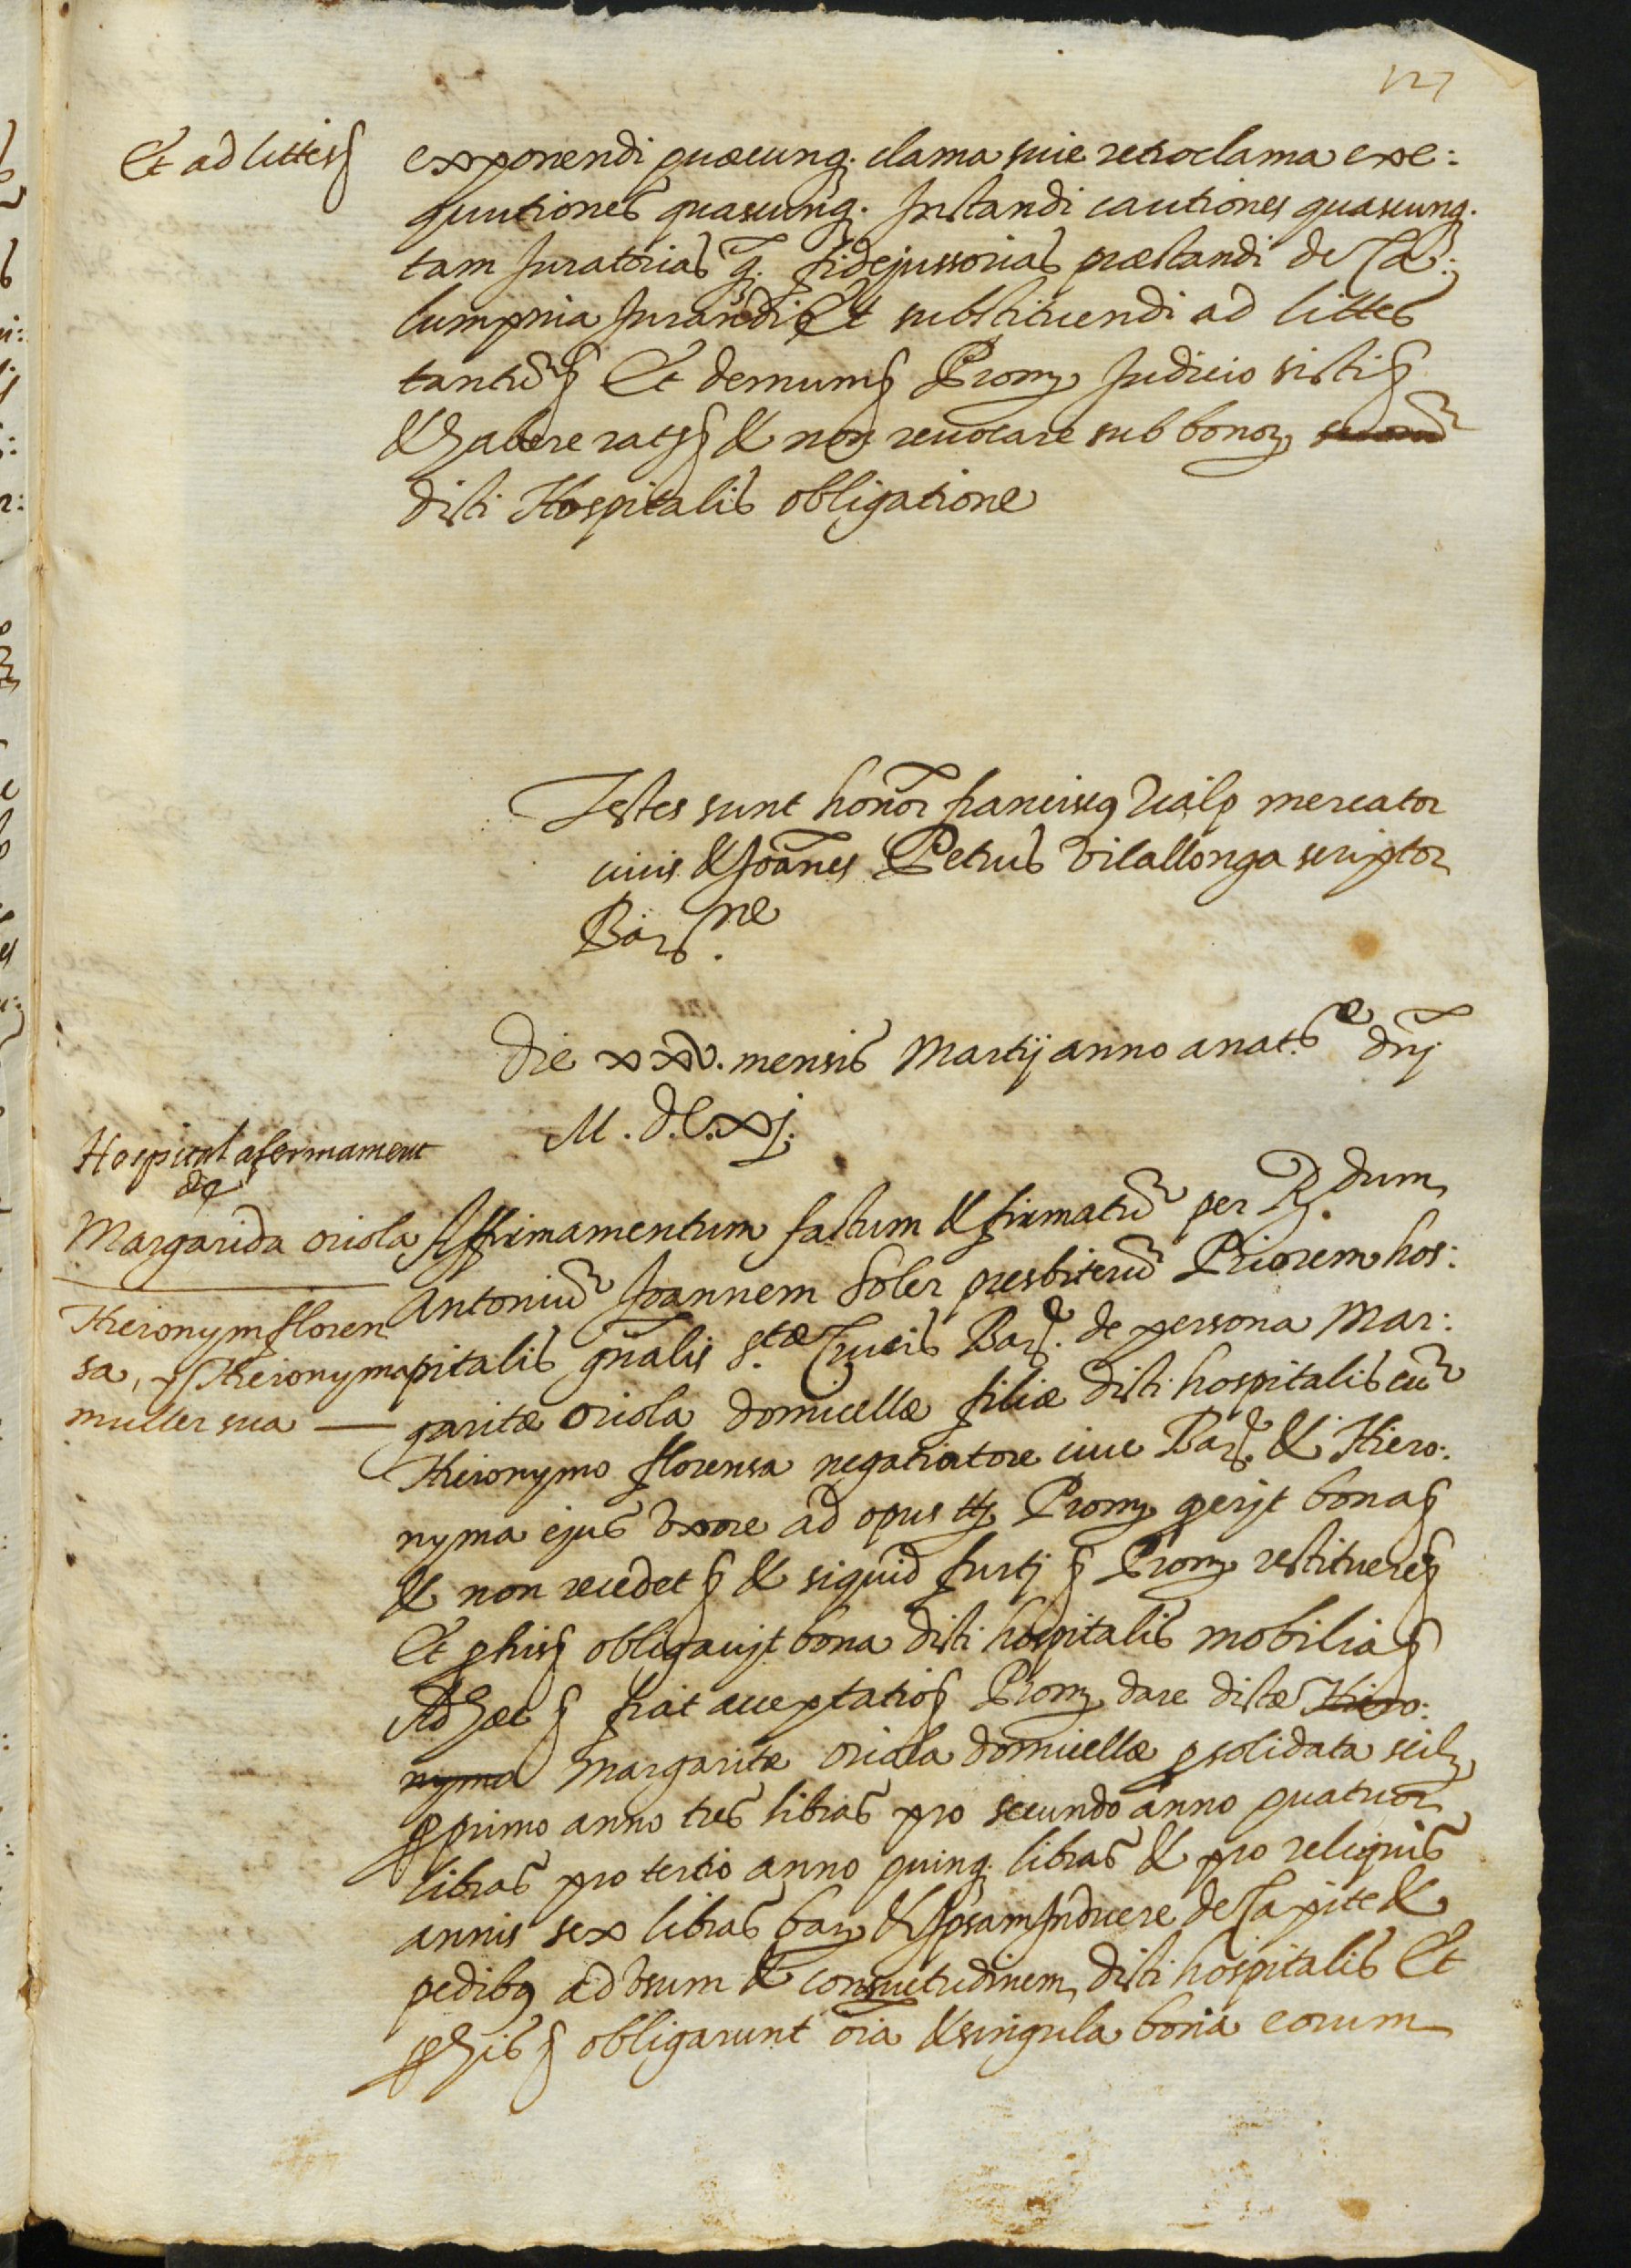 127
Et ad littes§
exponendi quæcunq. clama sive retroclama exe:
quutiones quascunq. Instandi cautiones quascunq.
tam Juratorias q̃. fidejussorias præstandi de Ca:
lumpnia Jurandi§ Et substituendi ad littes
tantũ§ Et demum§ Prom̃ Judicio sisti§
& habere rat§ & non revocare sub bonoꝝ suorũ
dicti Hospitalis obligatione
Testes sunt honor̃ franciscꝰ Vialp mercator
civis & Joãnes Petrus Vilallonga scriptor
Barᶜⁿᵉ
Die xxv. mensis Martij anno a natᵉ dñj
M.d.C.xj.
Hospital afermament
de
Margarida oriola
Hieronym floren
sa, y Hieronyma
muller sua —
Affirmamentum factum & firmatũ per R.dum
Antoniũ Joannem Soler presbiterũ Priorem hos:
pitalis gñalis S.tæ Crucis Barᵉ. de persona Mar:
garitæ oriola domicellæ filiæ dicti hospitalis cũ
Hieronymo florensa negatiatore cive Barᵉ. & Hiero:
nyma ejus Uxore ad opus Prom̃ qerjt bona§
& non recedet§ & siquid furtj§ Prom̃ restituere§
Et ꝓ his§ obligavjt bona dicti hospitalis mobilia§
Ad hæc§ fiat acceptatio§ Prom̃ dare dictæ Hiero:
nyma Margaritæ oriola domicellæ ꝓ solidata scilꝫ
ꝓ primo anno tres libras pro secundo anno quatuor
libras pro tertio anno quinq. libras & pro reliquis
annis sex libras bar̃ & Ipsam Induere de Capite &
pedibꝰ ad Usum & consuetudinem dicti hospitalis Et
ꝓ his§ obligarunt oĩa & singula bona eorum